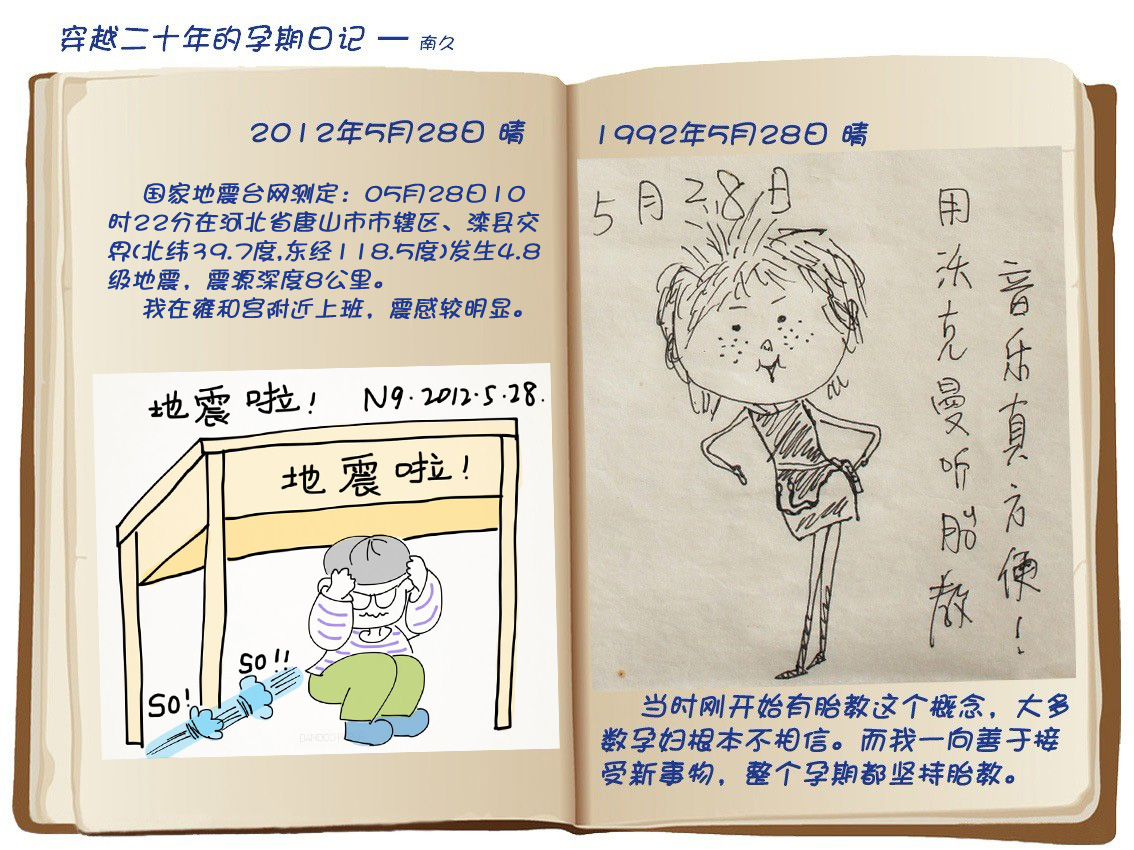 穿越二十年的孕期日记 — 南久
2012年5月28日 晴
国家地震台网测定：05月28日10
时22分在河北省唐山市市辖区、滦县交
界(北纬39.7度,东经118.5度)发生4.8
级地震，震源深度8公里。
我在雍和宫附近上班，震感较明显。
地震啦！ N9·2012·5·28.
地震啦！
SO!!
SO!
1992年5月28日 晴
5月28日
用沃克曼听胎教
音乐真方便！
当时刚开始有胎教这个概念，大多
数孕妇根本不相信。而我一向善于接
受新事物，整个孕期都坚持胎教。